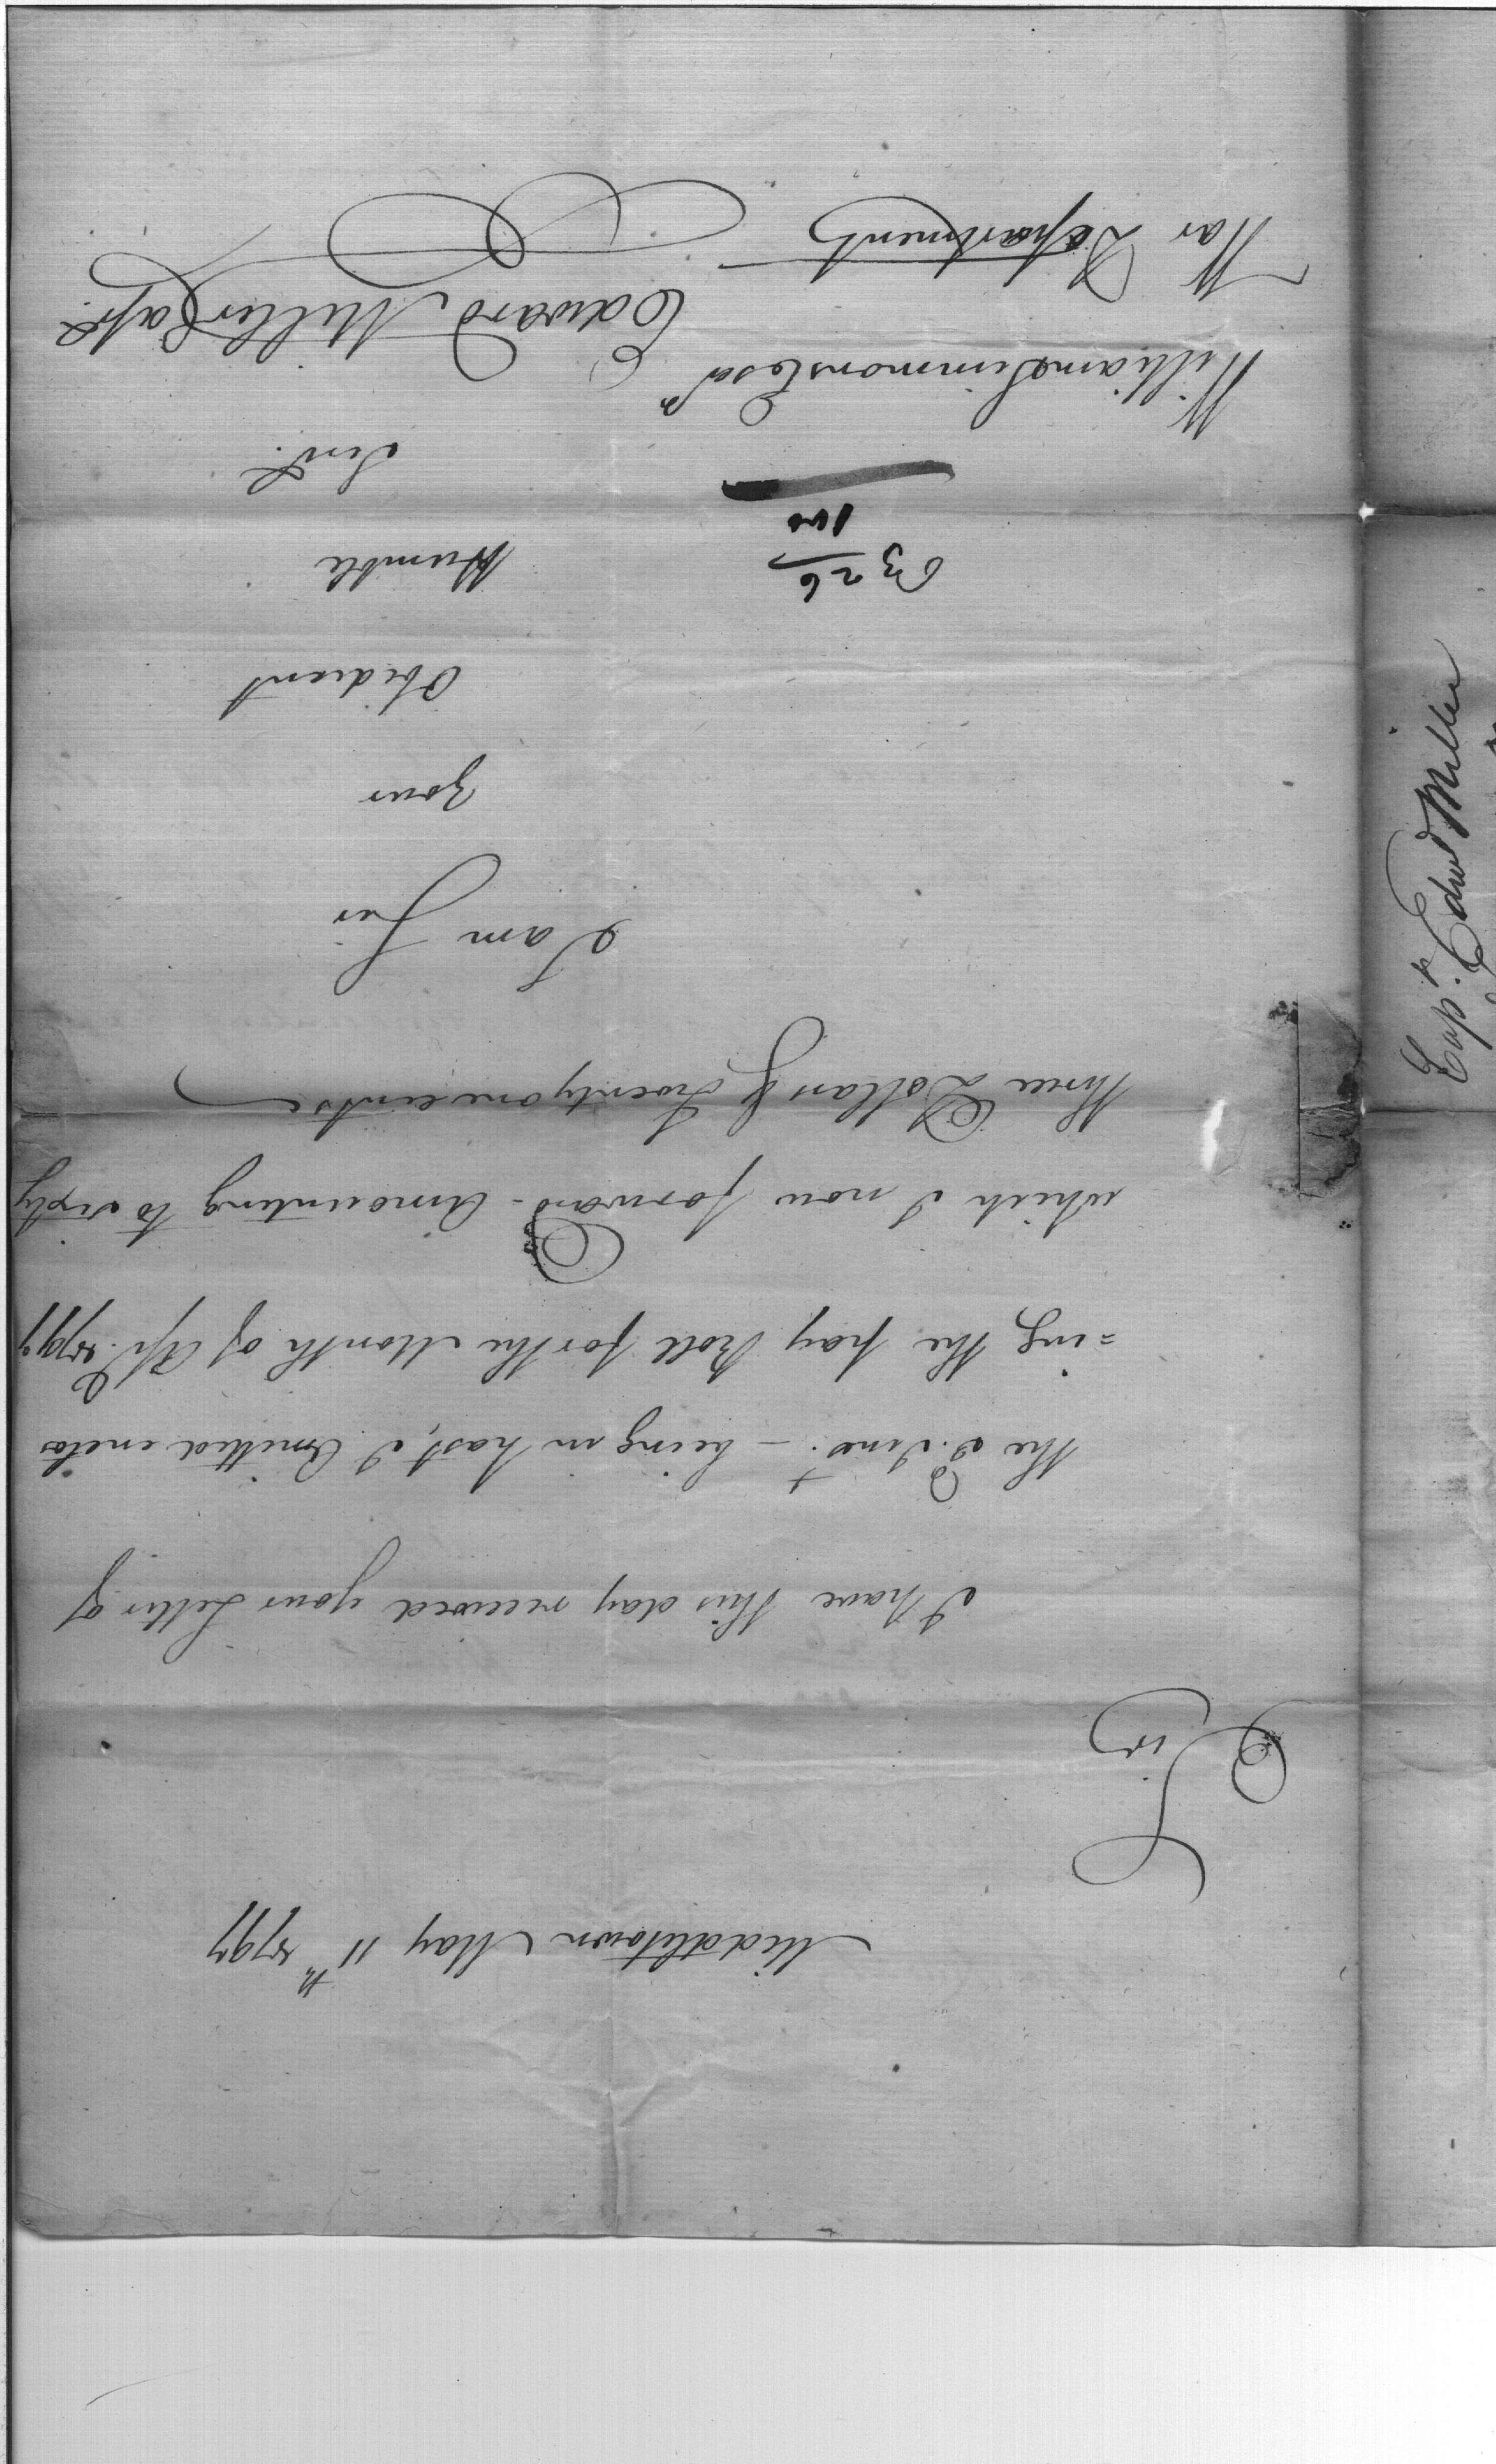 Middletown May 11th 1797
Sir
I have this day received your Letter of
the 2d. Inst. – being in hast, I Omitted enclos
=ing the pay Roll for the Month of Apl. 1797
which I now forward – Amounting to sixty
three Dollars & Twenty one cents
I am Sir
your
Obedient
Humble
Servt.
Edward Miller Capt.
William Simmons Esqr
War Department
63 26/100
Capt. Edwd Miller